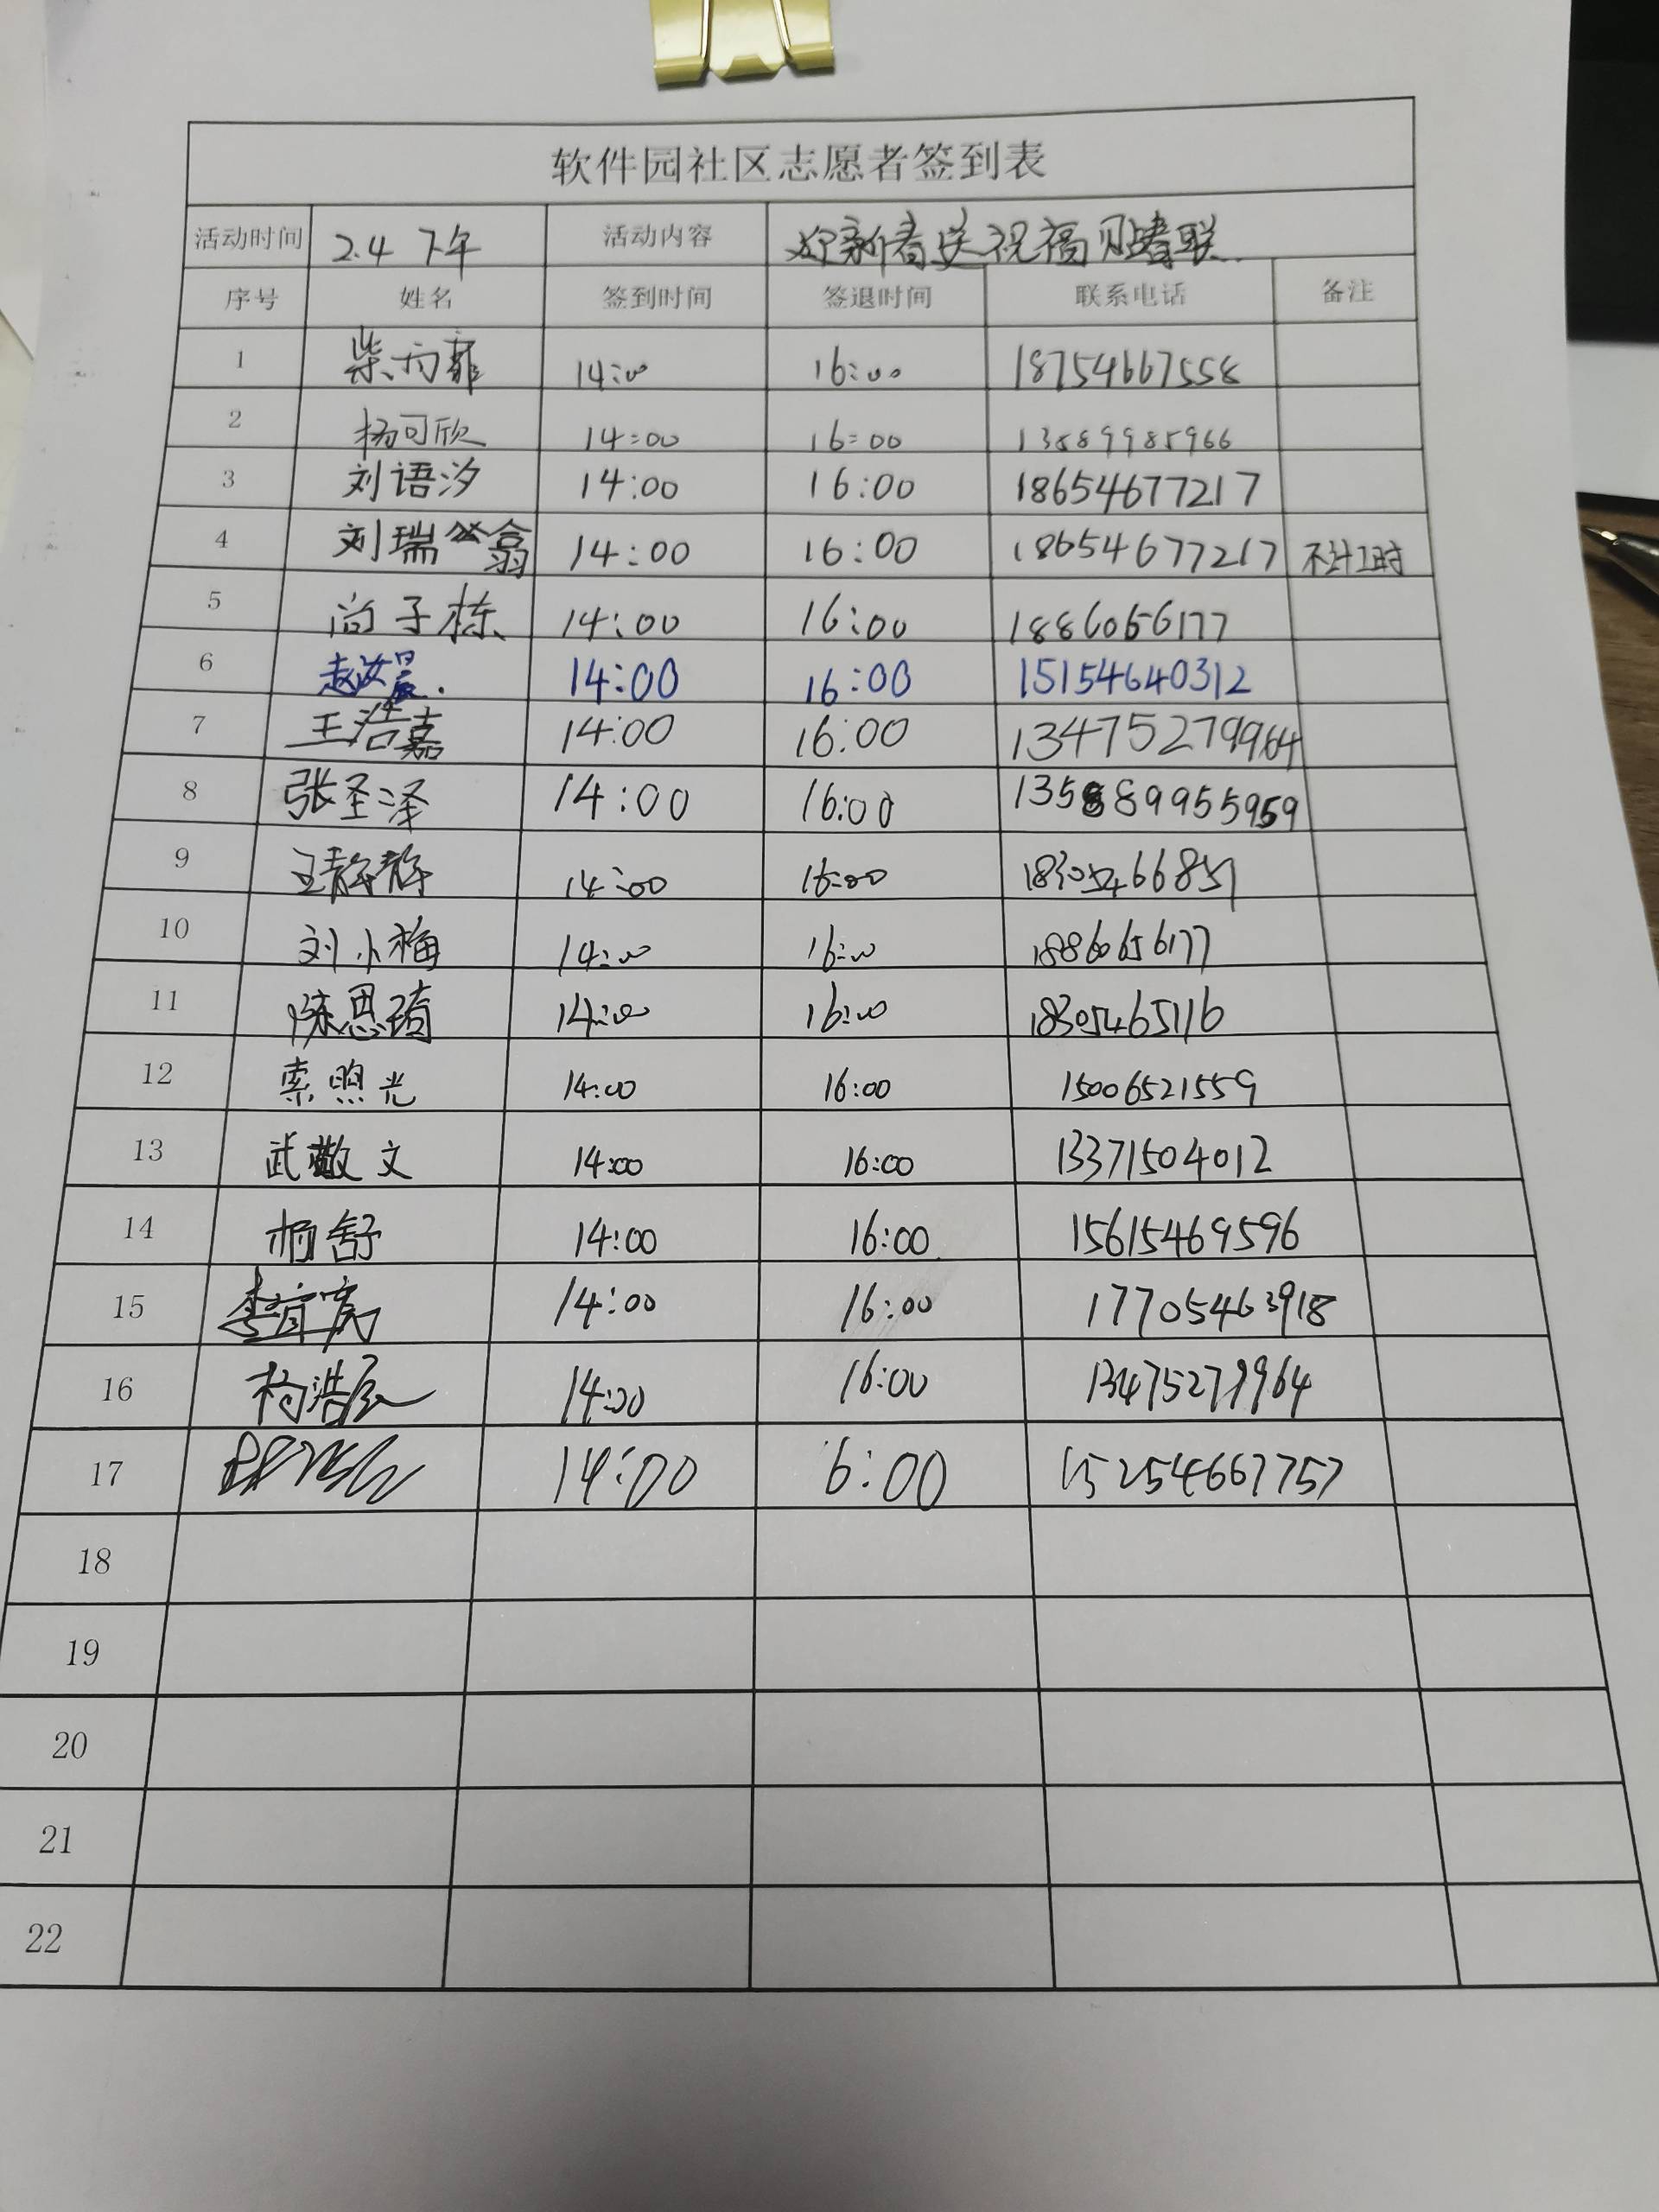 软件园社区志愿者签到表
活动时间 2.4 下午 活动内容 迎新春送祝福贴春联
序号 姓名 签到时间 签退时间 联系电话 备注
1 柴雨菲 14:00 16:00 18754667558
2 杨可欣 14:00 16:00 13589985966
3 刘语汐 14:00 16:00 18654677217
4 刘瑞翕 14:00 16:00 18654677217 不计工时
5 尚子栋 14:00 16:00 18860656177
6 赵汝晨. 14:00 16:00 15154640312
7 王浩嘉 14:00 16:00 13475279964
8 张圣泽 14:00 16:00 135889955959
9 王静静 14:00 16:00 18305466851
10 刘小梅 14:00 16:00 18860656177
11 陈思琦 14:00 16:00 18305465116
12 索照光 14:00 16:00 15006521559
13 武敬文 14:00 16:00 13371504012
14 杨舒 14:00 16:00 15615469596
15 李宜宾 14:00 16:00 17705463918
16 杨浩辰 14:00 16:00 13475279964
17 14:00 16:00 15254667757
18
19
20
21
22